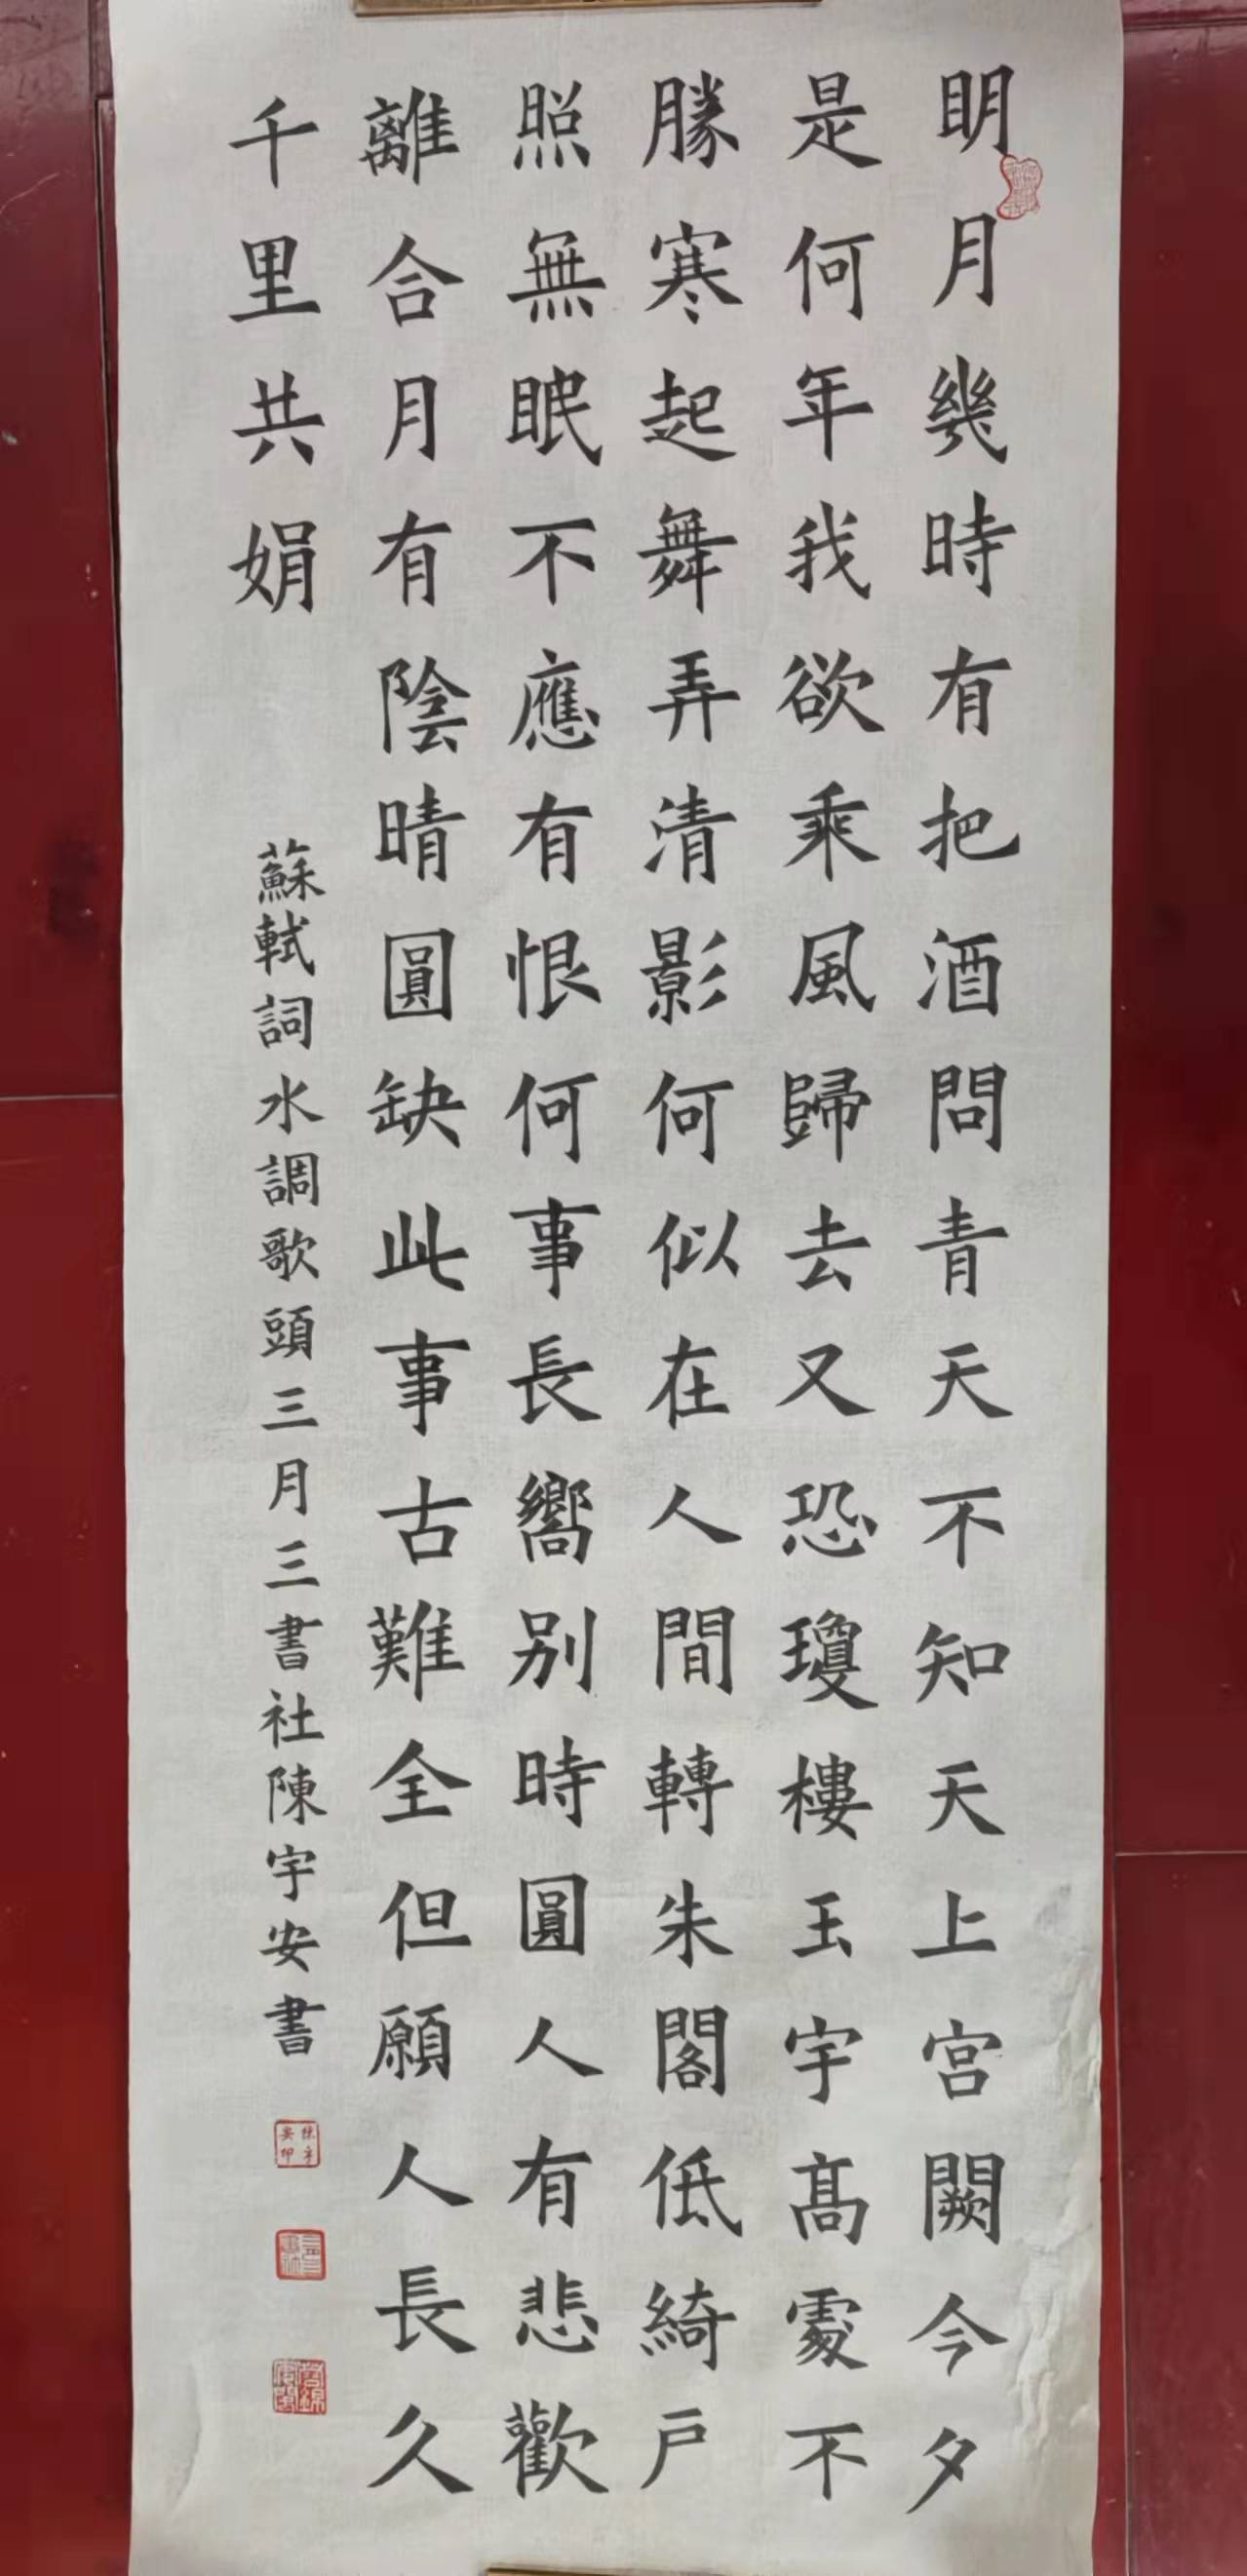 明月幾時有把酒問青天不知天上宮闕今夕
是何年我欲乘風歸去又恐瓊樓玉宇高處不
勝寒起舞弄清影何似在人間轉朱閣低綺戶
照無眠不應有恨何事長嚮别時圓人有悲歡
離合月有陰晴圓缺此事古難全但願人長久
千里共娟
蘇軾詞水調歌頭三月三書社陳宇安書